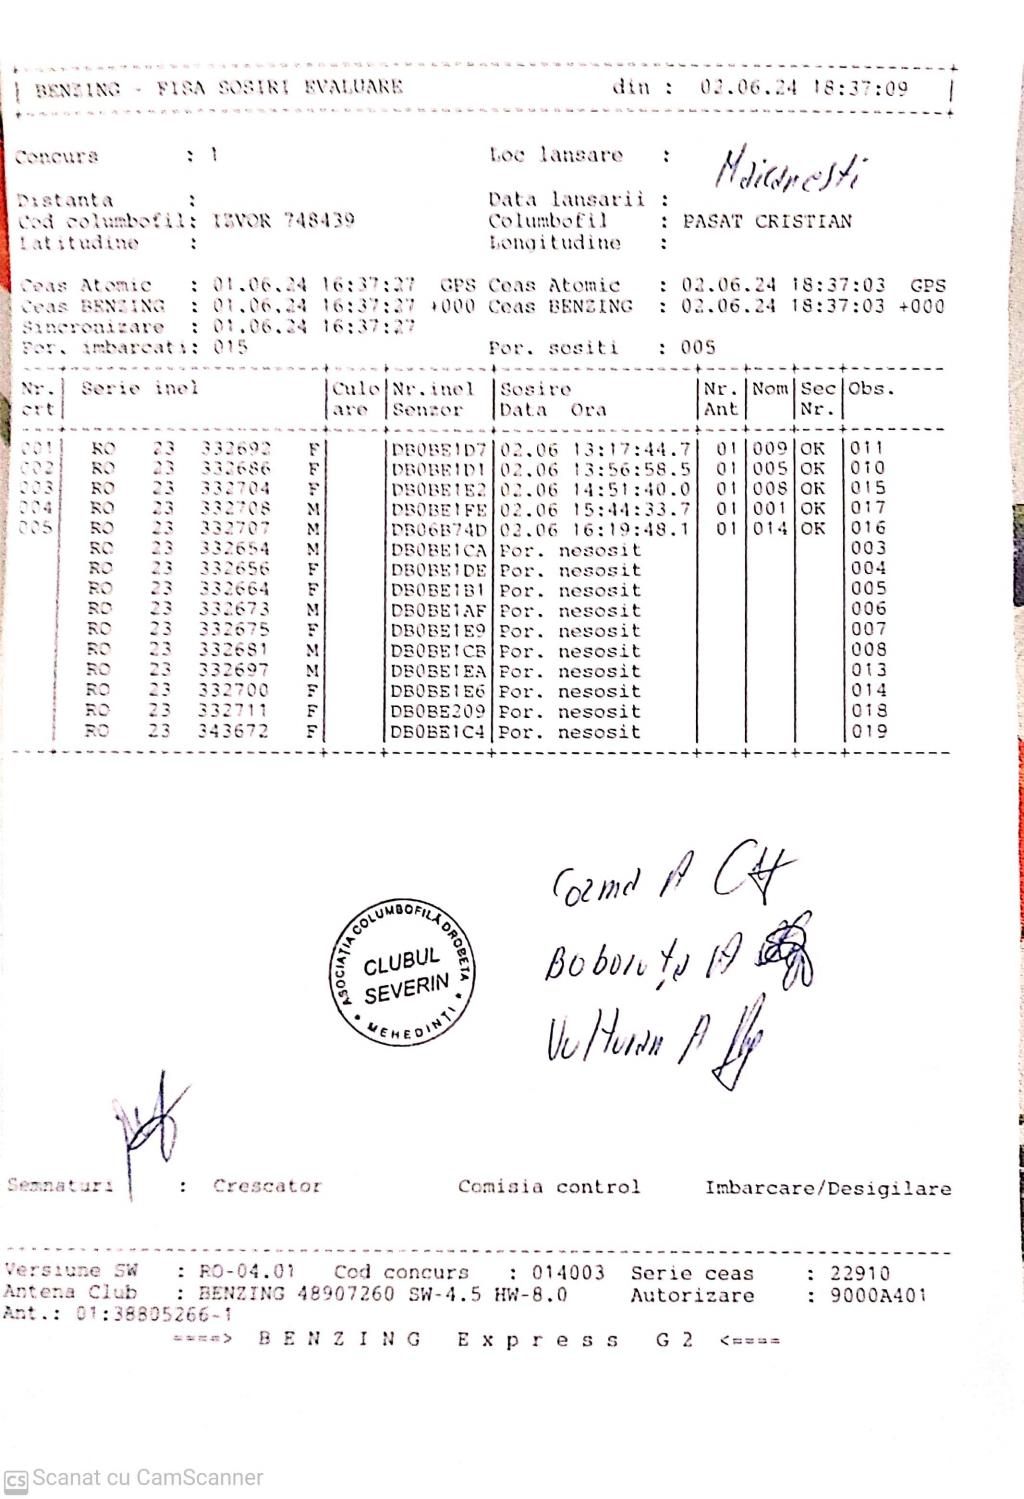 BENZING - FISA SOSIRI EVALUARE din : 02.06.24 18:37:09
Concurs : 1 Loc lansare : Maicanesti
Distanta : Data lansarii :
Cod columbofil: IZVOR 748439 Columbofil : PASAT CRISTIAN
Latitudine : Longitudine :
Ceas Atomic : 01.06.24 16:37:27 GPS Ceas Atomic : 02.06.24 18:37:03 GPS
Ceas BENZING : 01.06.24 16:37:27 +000 Ceas BENZING : 02.06.24 18:37:03 +000
Sincronizare : 01.06.24 16:37:27
Por. imbarcati: 015 Por. sositi : 005
Nr. Serie inel Culo Nr.inel Sosire Nr. Nom Sec Obs.
crt are Senzor Data Ora Ant Nr.
001 RO 23 332692 F DB0BE1D7 02.06 13:17:44.7 01 009 OK 011
002 RO 23 332686 F DB0BE1D1 02.06 13:56:58.5 01 005 OK 010
003 RO 23 332704 F DB0BE1E2 02.06 14:51:40.0 01 008 OK 015
004 RO 23 332708 M DB0BE1FE 02.06 15:44:33.7 01 001 OK 017
005 RO 23 332707 M DB06B74D 02.06 16:19:48.1 01 014 OK 016
RO 23 332654 M DB0BE1CA Por. nesosit 003
RO 23 332656 F DB0BE1DE Por. nesosit 004
RO 23 332664 F DB0BE1B1 Por. nesosit 005
RO 23 332673 M DB0BE1AF Por. nesosit 006
RO 23 332675 F DB0BE1E9 Por. nesosit 007
RO 23 332681 M DB0BE1CB Por. nesosit 008
RO 23 332697 M DB0BE1EA Por. nesosit 013
RO 23 332700 F DB0BE1E6 Por. nesosit 014
RO 23 332711 F DB0BE209 Por. nesosit 018
RO 23 343672 F DB0BE1C4 Por. nesosit 019
Cozma A
ASOCIAȚIA COLUMBOFILĂ DROBETA
CLUBUL
SEVERIN
* MEHEDINȚI *
A
Vulturan A
Semnaturi : Crescator Comisia control Imbarcare/Desigilare
Versiune SW : RO-04.01 Cod concurs : 014003 Serie ceas : 22910
Antena Club : BENZING 48907260 SW-4.5 HW-8.0 Autorizare : 9000A401
Ant.: 01:38805266-1
====> B E N Z I N G E x p r e s s G 2 <====
CS Scanat cu CamScanner